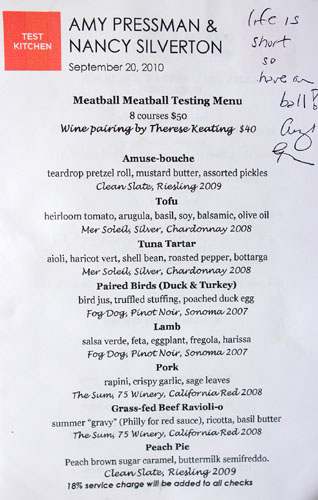 TEST
KITCHEN
AMY PRESSMAN &
NANCY SILVERTON
September 20, 2010
life is
short
so
have a
ball!
Amy
Meatball Meatball Testing Menu
8 courses $50
Wine pairing by Therese Keating $40
Amuse-bouche
teardrop pretzel roll, mustard butter, assorted pickles
Clean Slate, Riesling 2009
Tofu
heirloom tomato, arugula, basil, soy, balsamic, olive oil
Mer Soleil, Silver, Chardonnay 2008
Tuna Tartar
aioli, haricot vert, shell bean, roasted pepper, bottarga
Mer Soleil, Silver, Chardonnay 2008
Paired Birds (Duck & Turkey)
bird jus, truffled stuffing, poached duck egg
Fog Dog, Pinot Noir, Sonoma 2007
Lamb
salsa verde, feta, eggplant, fregola, harissa
Fog Dog, Pinot Noir, Sonoma 2007
Pork
rapini, crispy garlic, sage leaves
The Sum, 75 Winery, California Red 2008
Grass-fed Beef Ravioli-o
summer "gravy" (Philly for red sauce), ricotta, basil butter
The Sum, 75 Winery, California Red 2008
Peach Pie
Peach brown sugar caramel, buttermilk semifreddo.
Clean Slate, Riesling 2009
18% service charge will be added to all checks